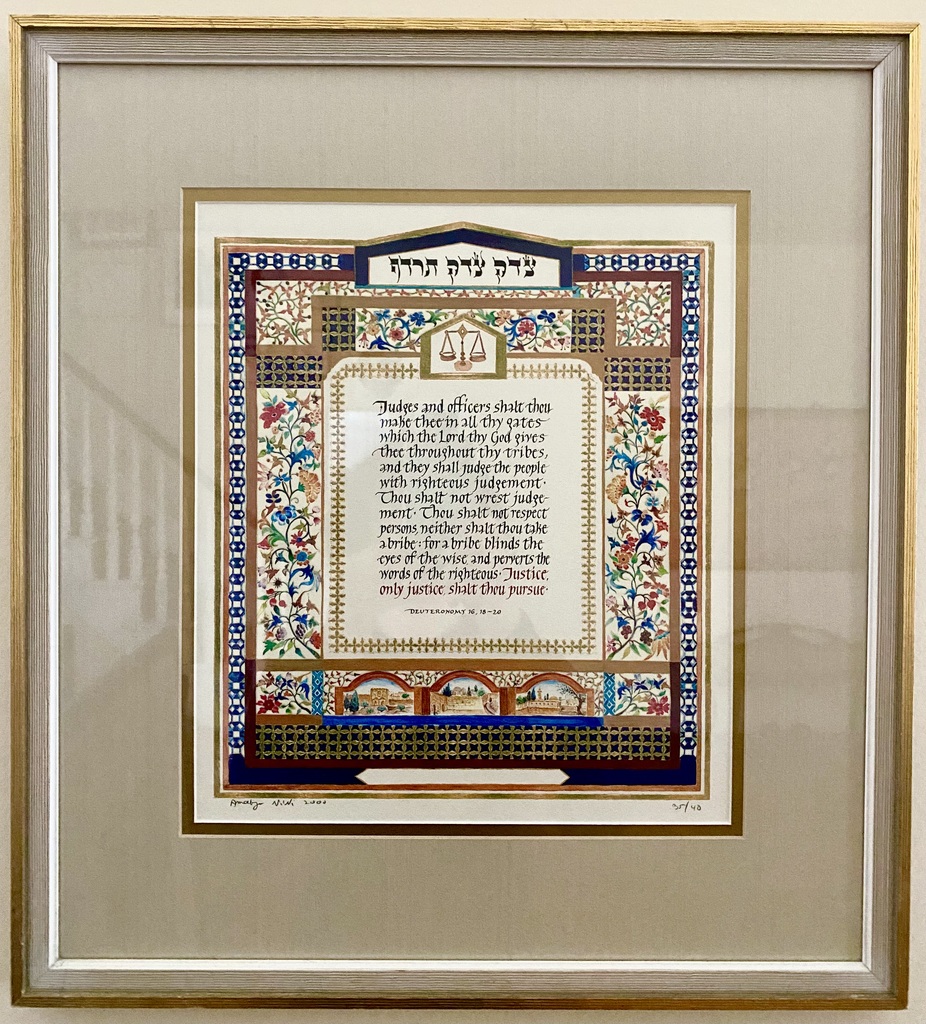 צדק צדק תרדף
Judges and officers shalt thou
make thee in all thy gates
which the Lord thy God gives
thee throughout thy tribes,
and they shall judge the people
with righteous judgement·
Thou shalt not wrest judge-
ment· Thou shalt not respect
persons, neither shalt thou take
a bribe: for a bribe blinds the
eyes of the wise, and perverts the
words of the righteous· Justice,
only justice, shalt thou pursue·
DEUTERONOMY 16, 18-20
2000
35/40